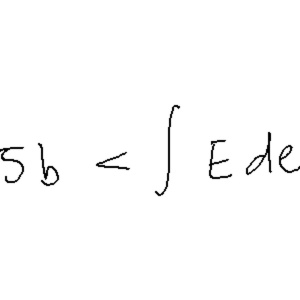 5b < ∫ E de